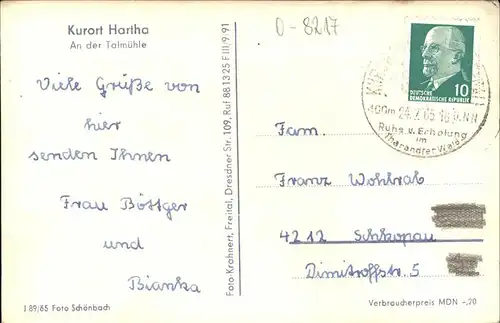 Kurort Hartha
An der Talmühle
Viele Grüße von
hier
senden Ihnen
Frau Böttger
und
Bianka
I 89/65 Foto Schönbach
Foto-Krahnert, Freital, Dresdner Str. 109, Ruf 88 13 25 F III/9/91
D-8217
10
DEUTSCHE
DEMOKRATISCHE REPUBLIK
400m
Ruhe u. Erholung
im
Tharandter Wald
Fam.
Franz Wohlrab
4212 Schkopau
Dimitroffstr. 5
Verbraucherpreis MDN -,20